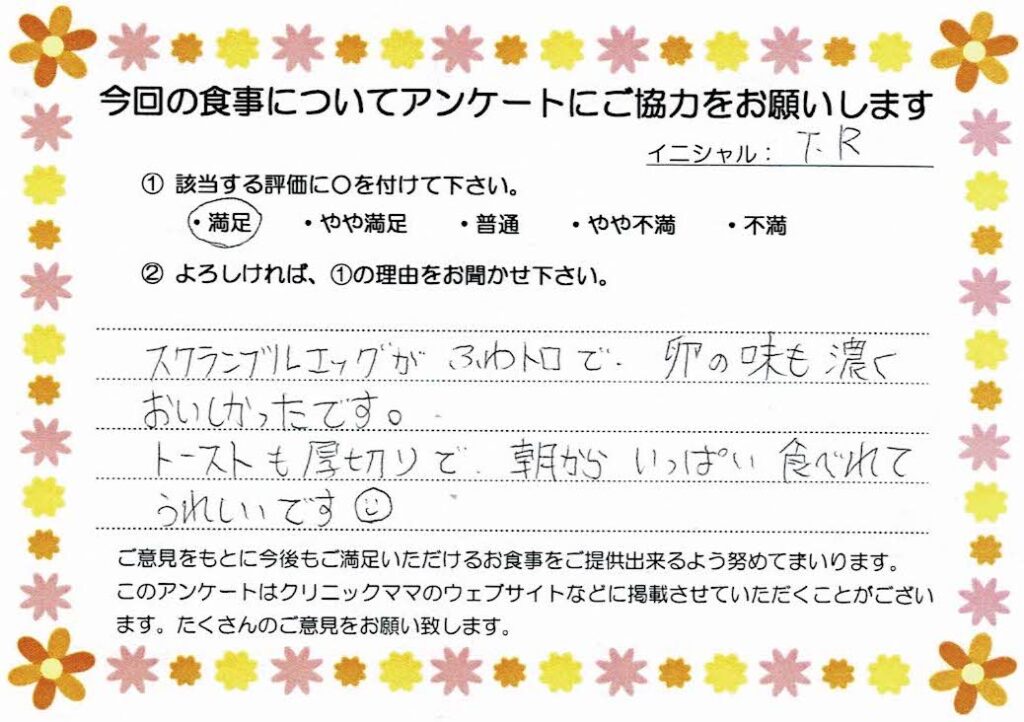 今回の食事についてアンケートにご協力をお願いします
イニシャル： T.R
① 該当する評価に○を付けて下さい。
・満足 ・やや満足 ・普通 ・やや不満 ・不満
② よろしければ、①の理由をお聞かせ下さい。
スクランブルエッグが ふわトロで、卵の味も濃く
おいしかったです。
トーストも厚切りで、朝から いっぱい 食べれて
うれしいです
ご意見をもとに今後もご満足いただけるお食事をご提供出来るよう努めてまいります。
このアンケートはクリニックママのウェブサイトなどに掲載させていただくことがござい
ます。たくさんのご意見をお願い致します。